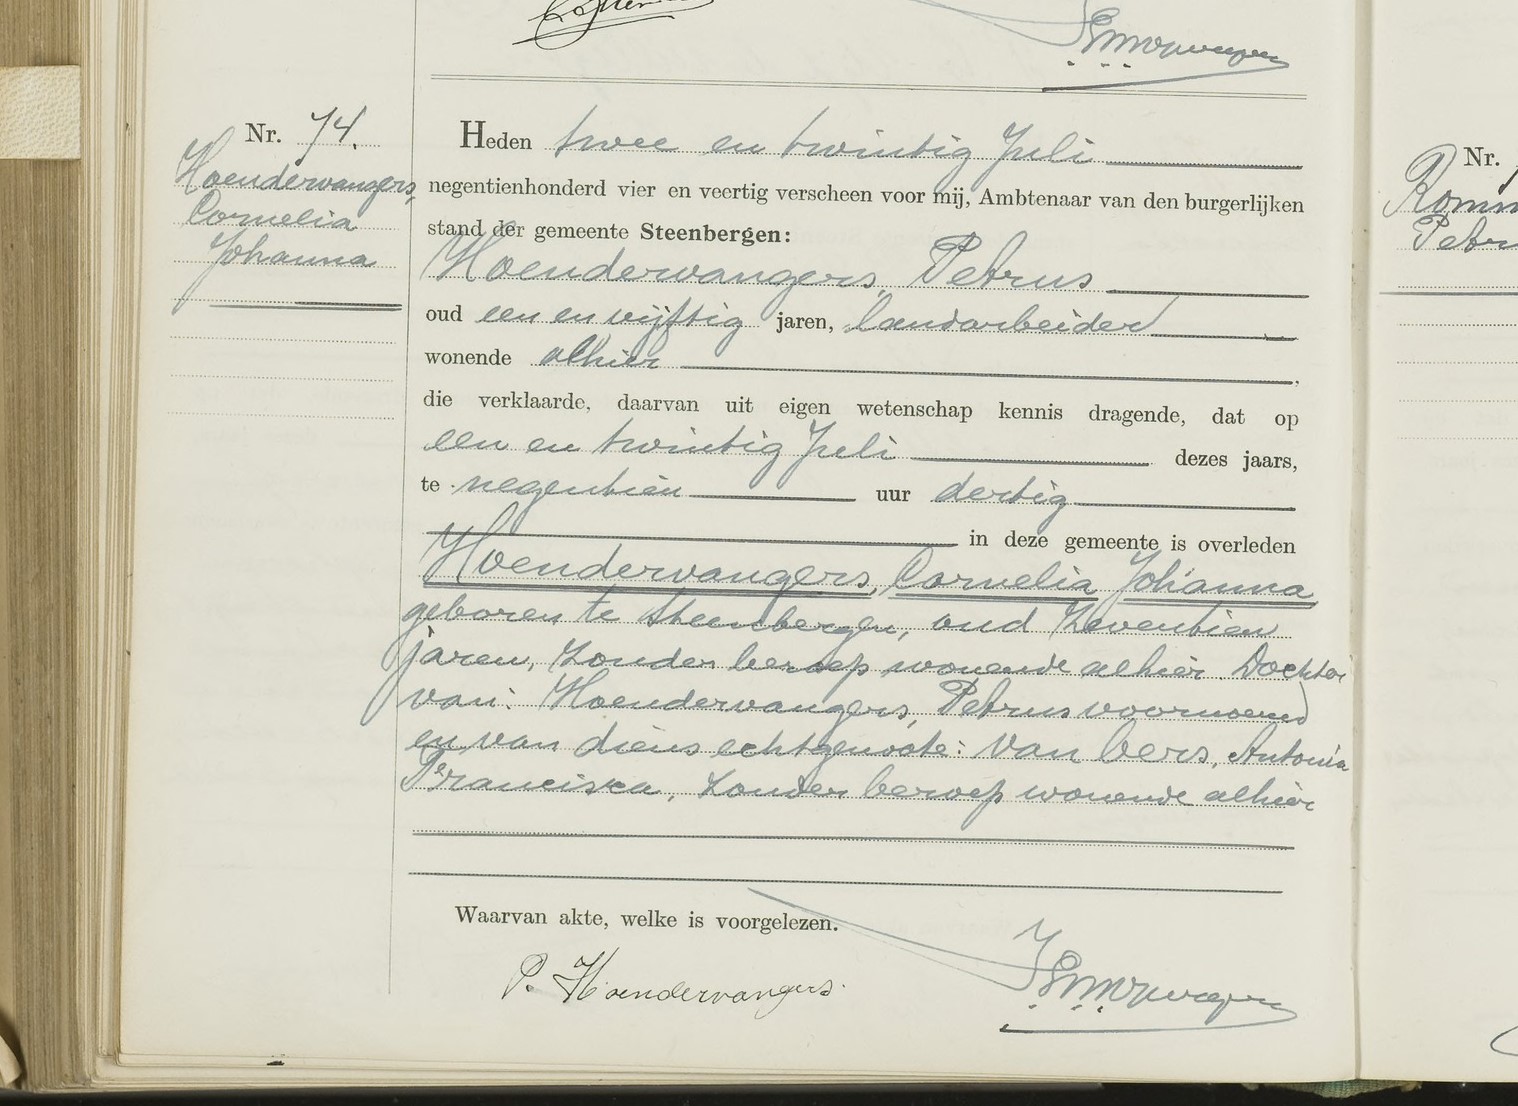 Nr. 74.
Hoendervangers,
Cornelia
Johanna
Heden twee en twintig Juli
negentienhonderd vier en veertig verscheen voor mij, Ambtenaar van den burgerlijken
stand der gemeente Steenbergen:
Hoendervangers, Petrus
oud een en vijftig jaren, landarbeider
wonende alhier
die verklaarde, daarvan uit eigen wetenschap kennis dragende, dat op
een en twintig Juli dezes jaars,
te negentien uur dertig
in deze gemeente is overleden
Hoendervangers, Cornelia Johanna
geboren te Steenbergen, oud zeventien
jaren, zonder beroep wonende alhier. Dochter
van: Hoendervangers, Petrus voornoemd
en van diens echtgenoote: van Oers, Antonia
Francisca, zonder beroep wonende alhier
Waarvan akte, welke is voorgelezen.
P. Hoendervangers.
Nr.
Romm
Petr